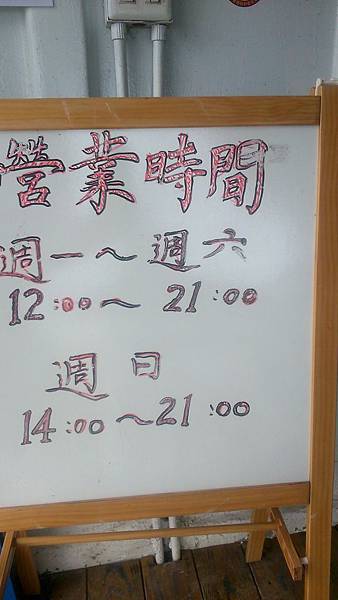 營業時間
週一～週六
12:00～21:00
週日
14:00～21:00